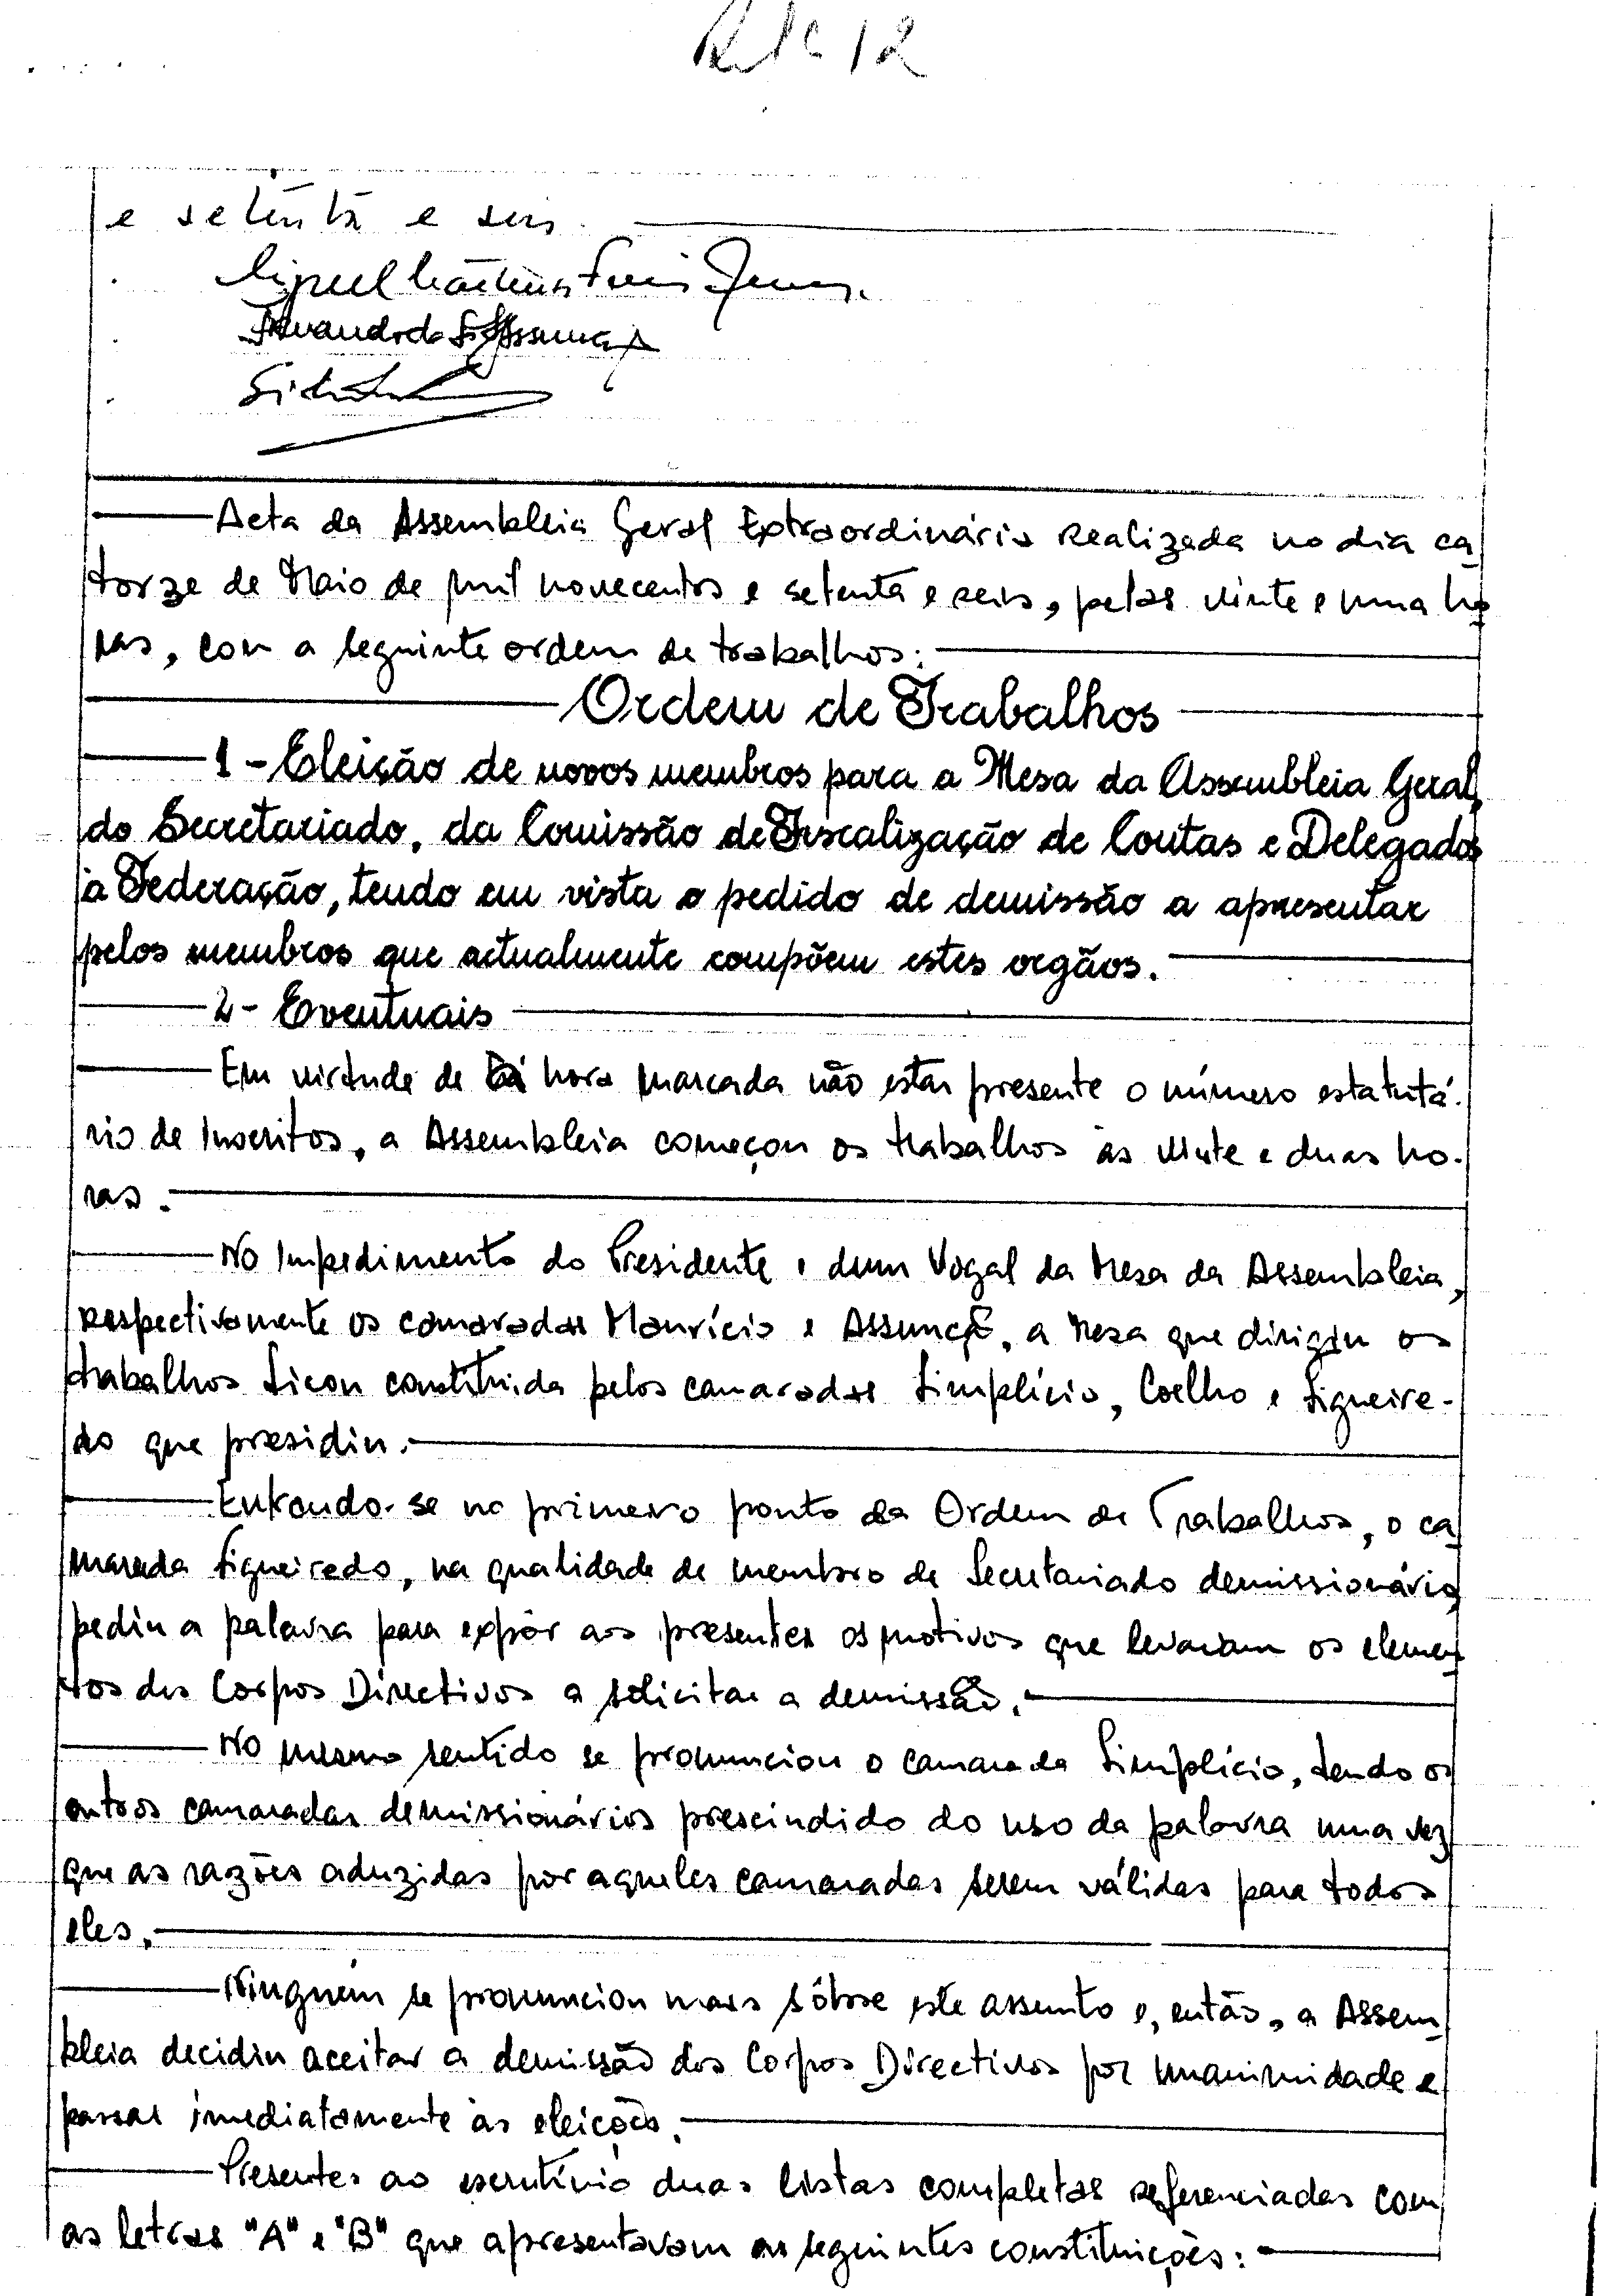 12
e setenta e seis
Acta da Assembleia Geral Extraordinária realizada no dia ca
torze de Maio de mil novecentos e setenta e seis, pelas vinte e uma ho
ras, com a seguinte ordem de trabalhos:
Ordem de Trabalhos
1 - Eleição de novos membros para a Mesa da Assembleia Geral,
do Secretariado, da Comissão de Fiscalização de Contas e Delegados
à Federação, tendo em vista o pedido de demissão a apresentar
pelos membros que actualmente compõem estes orgãos.
2 - Eventuais
Em virtude de à hora marcada não estar presente o número estatutá-
rio de Inscritos, a Assembleia começou os trabalhos às vinte e duas ho-
ras.
No Impedimento do Presidente e dum Vogal da Mesa da Assembleia,
respectivamente os camaradas Maurício e Assunção, a Mesa que dirigiu os
trabalhos ficou constituida pelos camaradas Simplício, Coelho e Figueire-
do que presidiu.
Entrando-se no primeiro ponto da Ordem de Trabalhos, o ca
marada Figueiredo, na qualidade de membro de Secretariado demissionário,
pediu a palavra para expôr aos presentes os motivos que levavam os elemen
tos dos Corpos Directivos a solicitar a demissão.
No mesmo sentido se pronunciou o camarada Simplício, tendo os
outros camaradas demissionários prescindido do uso da palavra uma vez
que as razões aduzidas por aqueles camaradas serem válidas para todos
eles.
Ninguém se pronunciou mais sôbre este assunto e, então, a Assem
bleia decidiu aceitar a demissão dos Corpos Directivos por unanimidade e
passar imediatamente às eleições.
Presentes ao escrutínio duas listas completas referenciadas com
as letras "A" e "B" que apresentavam as seguintes constituições: